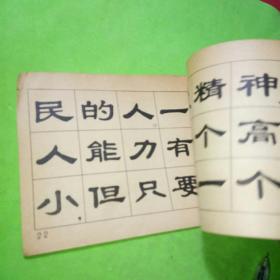 民的人一
人能力有
小但只要
22
精神
个高
一个